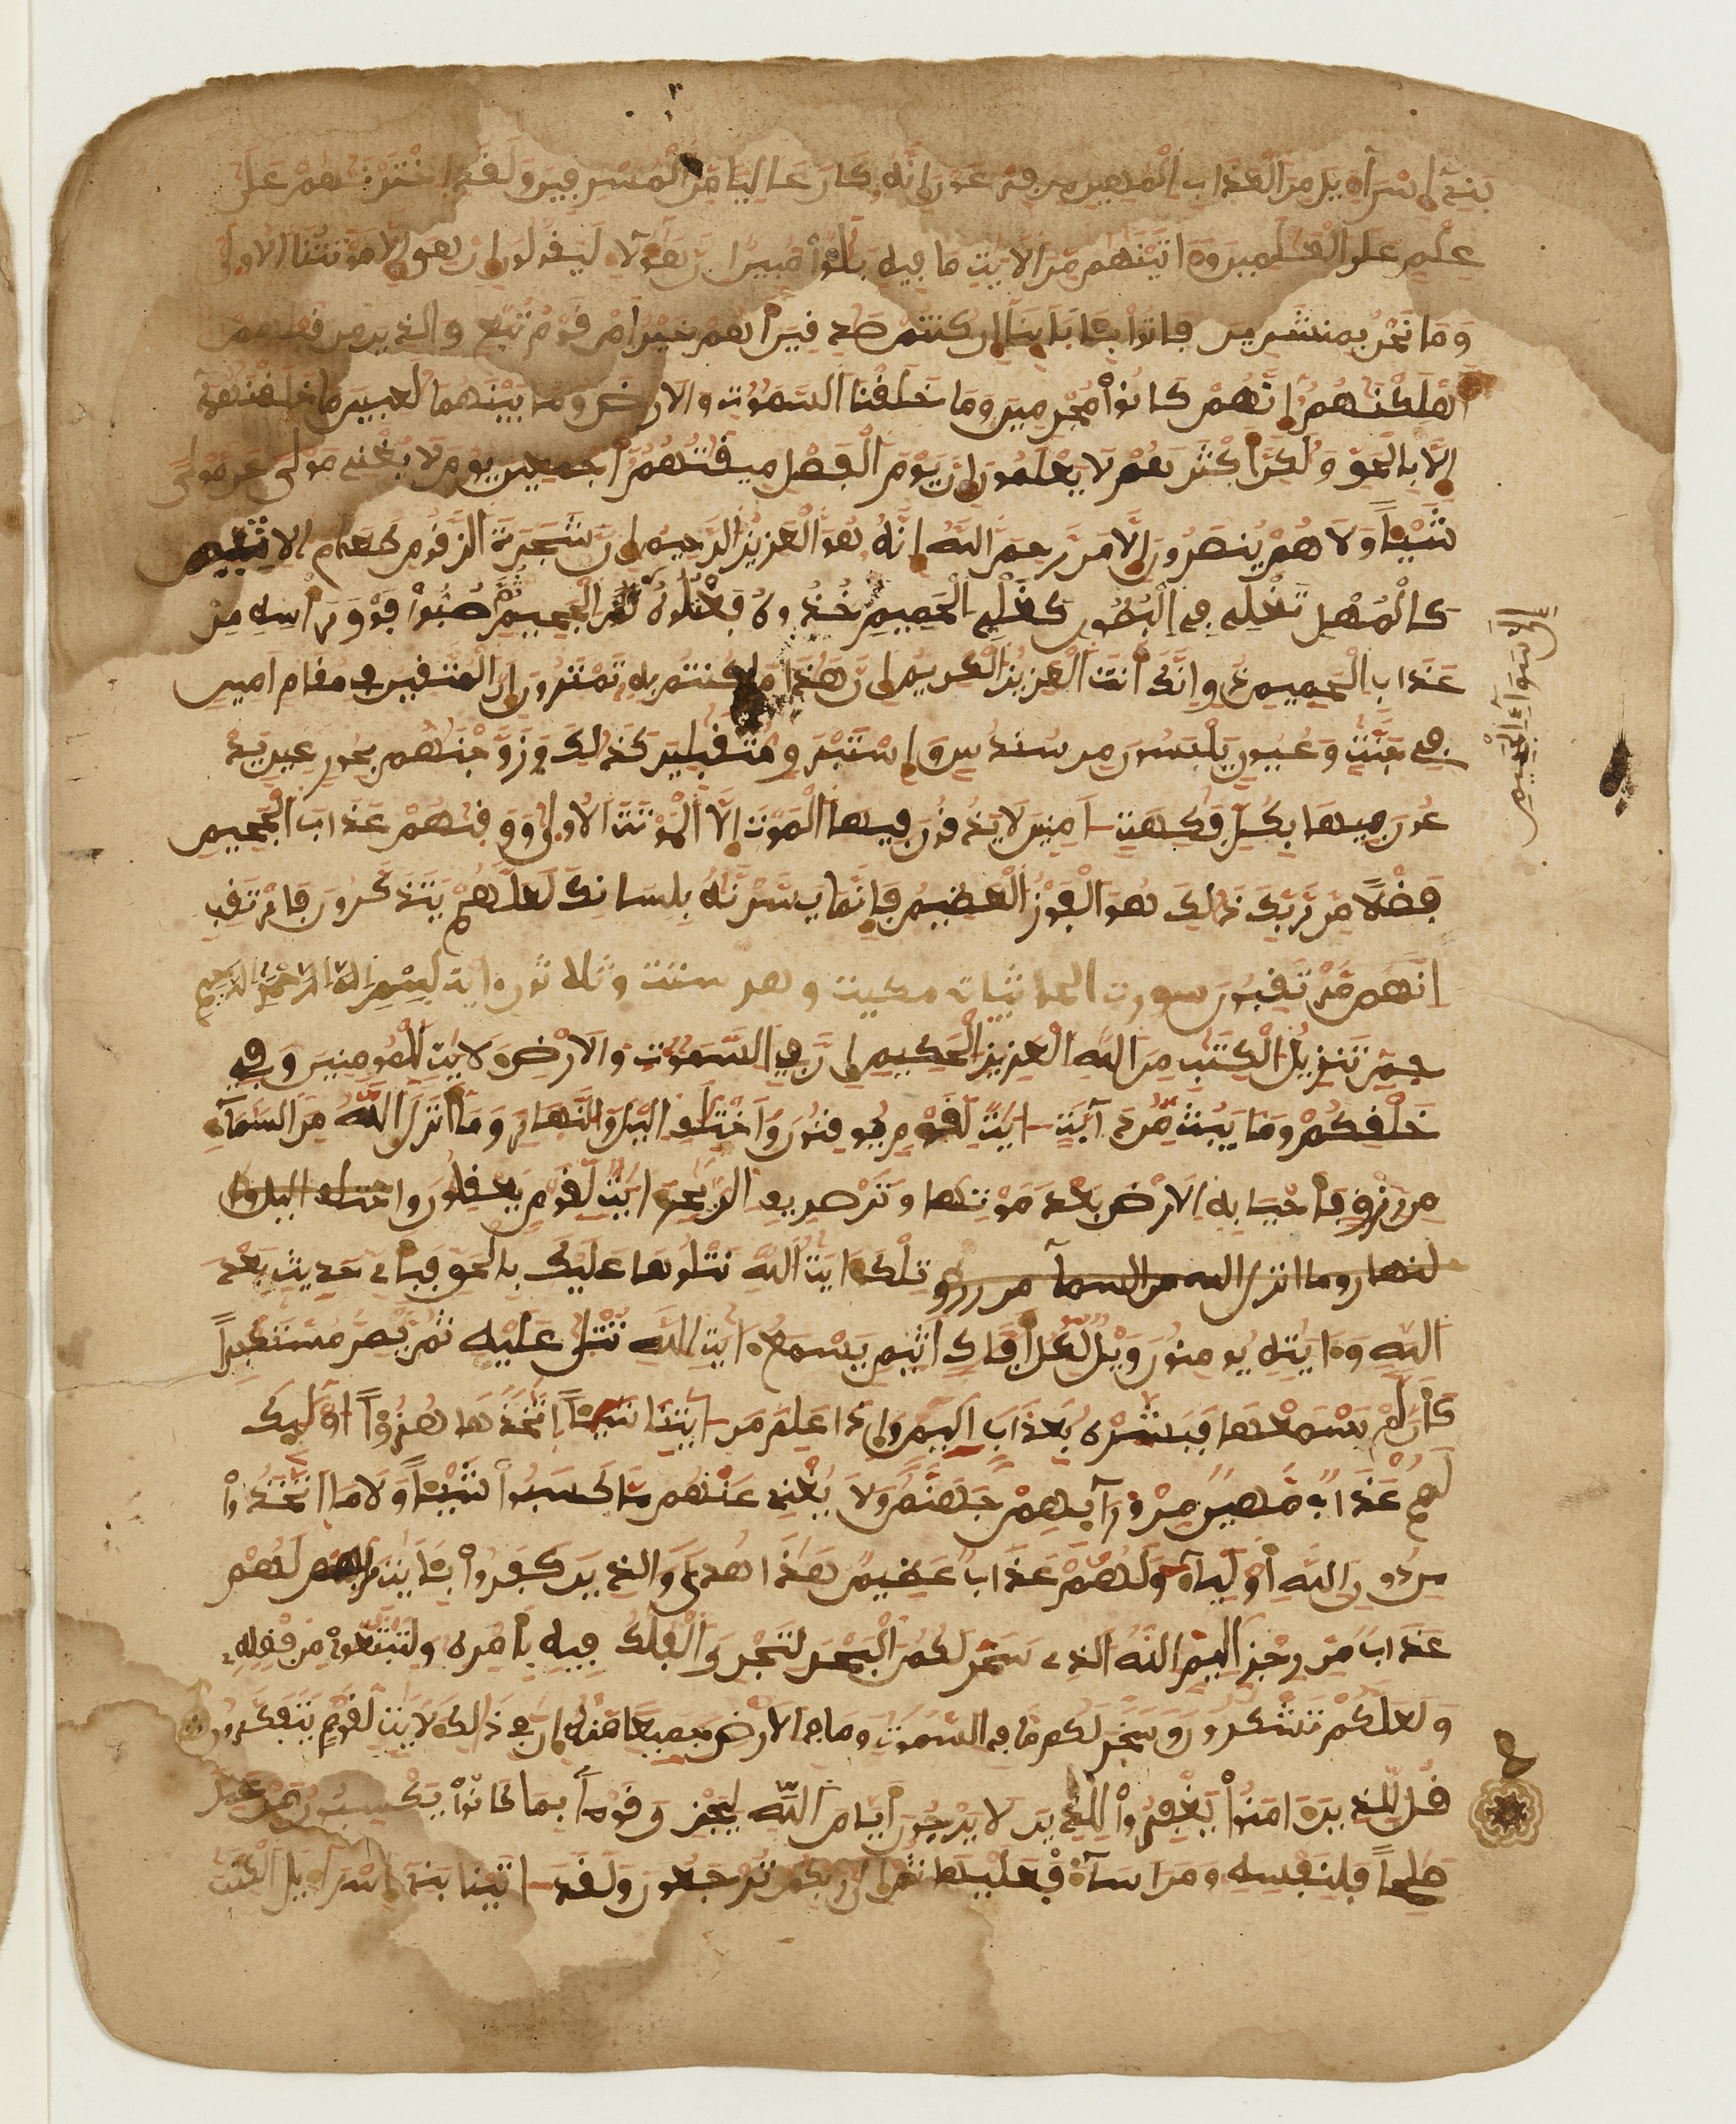 بَنِےٓ إِسْرَآءِيلَ مِنَ ٱلْعَذَابِ ٱلْمُهِينِ مِن فِرْعَوْنَ إِنَّهُۥ كَانَ عَالِيًا مِّنَ ٱلْمُسْرِفِينَ وَلَقَدِ ٱخْتَرْنَٰهُمْ عَلَىٰ
عِلْمٍ عَلَى ٱلْعَٰلَمِينَ وَءَاتَيْنَٰهُم مِّنَ ٱلْأَيَٰتِ مَا فِيهِ بَلَٰٓؤٌا۟ مُّبِينٌ إِنَّ هَٰٓؤُلَآءِ لَيَقُولُونَ إِنْ هِىَ إِلَّا مَوْتَتُنَا ٱلْأُولَىٰ
وَمَا نَحْنُ بِمُنشَرِينَ فَاتُوا۟ بِـَٔابَآئِنَآ إِن كُنتُمْ صَٰدِقِينَ أَهُمْ خَيْرٌ أَمْ قَوْمُ تُبَّعٍ وَٱلَّذِينَ مِن قَبْلِهِمْ
أَهْلَكْنَٰهُمُۥٓ إِنَّهُمْ كَانُوا۟ مُجْرِمِينَ وَمَا خَلَقْنَا ٱلسَّمَٰوَٰتِ وَٱلْأَرْضَ وَمَا بَيْنَهُمَا لَٰعِبِينَ مَا خَلَقْنَٰهُمَآ
إِلَّا بِٱلْحَقِّ وَلَٰكِنَّ أَكْثَرَهُمْ لَا يَعْلَمُونَ إِنَّ يَوْمَ ٱلْفَصْلِ مِيقَٰتُهُمُۥٓ أَجْمَعِينَ يَوْمَ لَا يُغْنِے مَوْلًى عَن مَّوْلًى
شَيْـًٔا وَلَا هُمْ يُنصَرُونَ إِلَّا مَن رَّحِمَ ٱللَّهُ إِنَّهُۥ هُوَ ٱلْعَزِيزُ ٱلرَّحِيمُ إِنَّ شَجَرَتَ ٱلزَّقُّومِ طَعَامُ ٱلْأَثِيمِ
كَالْمُهْلِ تَغْلِے فِے ٱلْبُطُونِ كَغَلْىِ ٱلْحَمِيمِ خُذُوهُ فَاعْتُلُوهُ إِلَىٰ سَوَآءِ ٱلْجَحِيمِ ثُمَّ صُبُّوا۟ فَوْقَ رَأْسِهِۦ مِنْ
عَذَابِ ٱلْحَمِيمِ ذُقِ إِنَّكَ أَنتَ ٱلْعَزِيزُ ٱلْكَرِيمُ إِنَّ هَٰذَا مَا كُنتُم بِهِۦ تَمْتَرُونَ إِنَّ ٱلْمُتَّقِينَ فِے مُقَامٍ أَمِينٍ
فِے جَنَّٰتٍ وَعُيُونٍ يَلْبَسُونَ مِن سُندُسٍ وَإِسْتَبْرَقٍ مُّتَقَٰبِلِينَ كَذَٰلِكَ وَزَوَّجْنَٰهُم بِحُورٍ عِينٍ يَدْ
عُونَ فِيهَا بِكُلِّ فَٰكِهَةٍ ءَامِنِينَ لَا يَذُوقُونَ فِيهَا ٱلْمَوْتَ إِلَّا ٱلْمَوْتَةَ ٱلْأُولَىٰ وَوَقَىٰهُمْ عَذَابَ ٱلْجَحِيمِ
فَضْلًا مِّن رَّبِّكَ ذَٰلِكَ هُوَ ٱلْفَوْزُ ٱلْعَظِيمُ فَإِنَّمَا يَسَّرْنَٰهُ بِلِسَانِكَ لَعَلَّهُمْ يَتَذَكَّرُونَ فَارْتَقِبِ
إِنَّهُم مُّرْتَقِبُونَ سورت الجاثيات مكيت وهو ستت وثلاثون ءاية بِسْمِ ٱللَّهِ ٱلرَّحْمَٰنِ ٱلرَّحِيمِ
حمٓ تَنزِيلُ ٱلْكِتَٰبِ مِنَ ٱللَّهِ ٱلْعَزِيزِ ٱلْحَكِيمِ إِنَّ فِے ٱلسَّمَٰوَٰتِ وَٱلْأَرْضِ لَأَيَٰتٍ لِّلْمُومِنِينَ وَفِے
خَلْقِكُمْ وَمَا يَبُثُّ مِن دَآبَّةٍ ءَايَٰتٌ لِّقَوْمٍ يُوقِنُونَ وَٱخْتِلَٰفِ ٱلَّيْلِ وَٱلنَّهَارِ وَمَآ أَنزَلَ ٱللَّهُ مِنَ ٱلسَّمَآءِ
مِن رِّزْقٍ فَأَحْيَا بِهِ ٱلْأَرْضَ بَعْدَ مَوْتِهَا وَتَصْرِيفِ ٱلرِّيَٰحِ ءَايَٰتٌ لِّقَوْمٍ يَعْقِلُونَ واختلف اليل وا
لنهار وما انزل الله من السمآ من رزق تِلْكَ ءَايَٰتُ ٱللَّهِ نَتْلُوهَا عَلَيْكَ بِٱلْحَقِّ فَبِأَيِّ حَدِيثٍ بَعْدَ
ٱللَّهِ وَءَايَٰتِهِۦ يُومِنُونَ وَيْلٌ لِّكُلِّ أَفَّاكٍ أَثِيمٍ يَسْمَعُ ءَايَٰتِ ٱللَّهِ تُتْلَىٰ عَلَيْهِ ثُمَّ يُصِرُّ مُسْتَكْبِرًا
كَأَن لَّمْ يَسْمَعْهَا فَبَشِّرْهُ بِعَذَابٍ أَلِيمٍ وَإِذَا عَلِمَ مِنْ ءَايَٰتِنَا شَيْـًٔا ٱتَّخَذَهَا هُزُؤًا أُو۟لَٰٓئِكَ
لَهُمْ عَذَابٌ مُّهِينٌ مِّن وَرَآئِهِمْ جَهَنَّمُ وَلَا يُغْنِے عَنْهُم مَّا كَسَبُوا۟ شَيْـًٔا وَلَا مَا ٱتَّخَذُوا۟
مِن دُونِ ٱللَّهِ أَوْلِيَآءَ وَلَهُمْ عَذَابٌ عَظِيمٌ هَٰذَا هُدًى وَٱلَّذِينَ كَفَرُوا۟ بِـَٔايَٰتِ رَبِّهِمْ لَهُمْ
عَذَابٌ مِّن رِّجْزٍ أَلِيمٍ ٱللَّهُ ٱلَّذِے سَخَّرَ لَكُمُ ٱلْبَحْرَ لِتَجْرِيَ ٱلْفُلْكُ فِيهِ بِأَمْرِهِۦ وَلِتَبْتَغُوا۟ مِن فَضْلِهِۦ
وَلَعَلَّكُمْ تَشْكُرُونَ وَسَخَّرَ لَكُم مَّا فِے ٱلسَّمَٰوَٰتِ وَمَا فِے ٱلْأَرْضِ جَمِيعًا مِّنْهُ إِنَّ فِے ذَٰلِكَ لَأَيَٰتٍ لِّقَوْمٍ يَتَفَكَّرُونَ
قُل لِّلَّذِينَ ءَامَنُوا۟ يَغْفِرُوا۟ لِلَّذِينَ لَا يَرْجُونَ أَيَّامَ ٱللَّهِ لِيَجْزِيَ قَوْمًا بِمَا كَانُوا۟ يَكْسِبُونَ مَنْ عَمِلَ
صَٰلِحًا فَلِنَفْسِهِۦ وَمَنْ أَسَآءَ فَعَلَيْهَا ثُمَّ إِلَىٰ رَبِّكُمْ تُرْجَعُونَ وَلَقَدْ ءَاتَيْنَا بَنِےٓ إِسْرَآءِيلَ ٱلْكِتَٰبَ
إِلَىٰ سَوَآءِ ٱلْجَحِيمِ